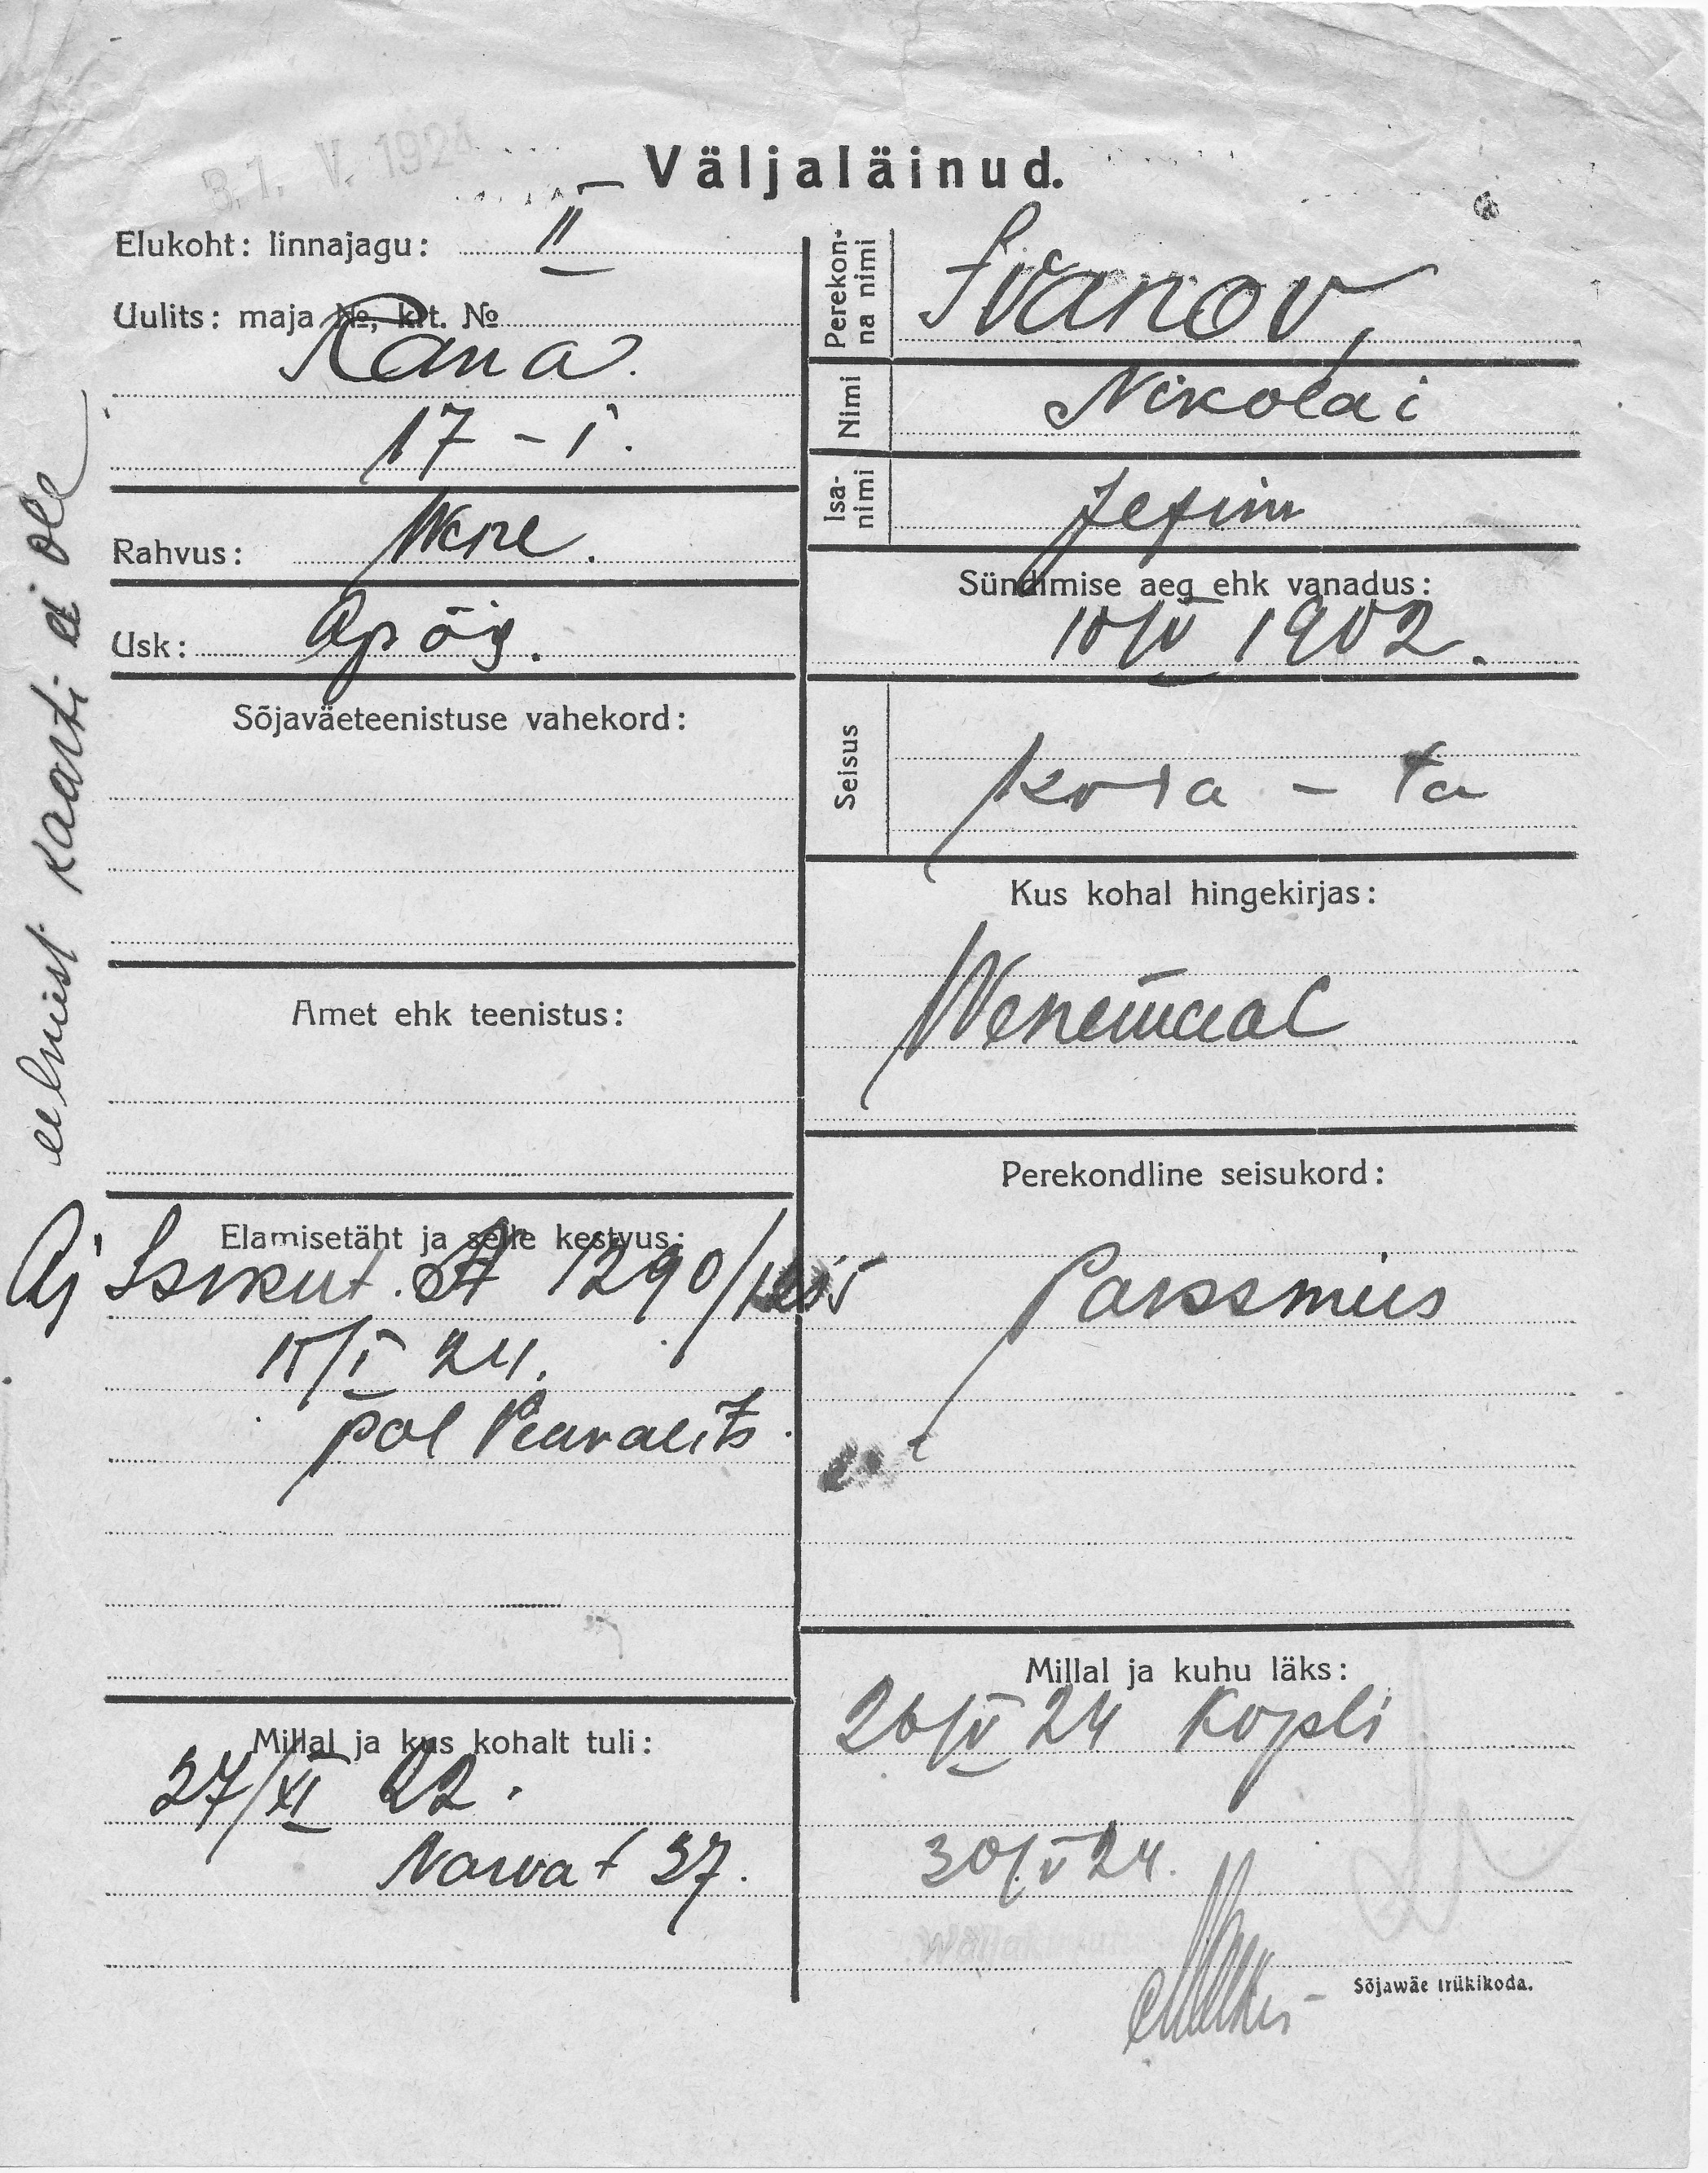 31. V. 1924
Väljaläinud.
Elukoht: linnajagu: II
Uulits: maja №, krt. №
Rana.
17 – 1.
Rahvus: Wene.
Usk: Ap õig.
Sõjaväeteenistuse vahekord:
Amet ehk teenistus:
Elamisetäht ja selle kestvus:
Isikut. A 1290/
15/I 24.
pol Peavalits.
Millal ja kus kohalt tuli:
27/XI 22.
Narva t 37.
eelmist kaarti ei ole
Perekon-
na nimi
Ivanov,
Nimi
Nikolai
Isa-
nimi
Jefim
Sündimise aeg ehk vanadus:
10/V 1902.
Seisus
koda – ta
Kus kohal hingekirjas:
Wenemaal
Perekondline seisukord:
Poissmees
Millal ja kuhu läks:
26/V 24 Kopli
30/V 24.
Sõjawäe trükikoda.